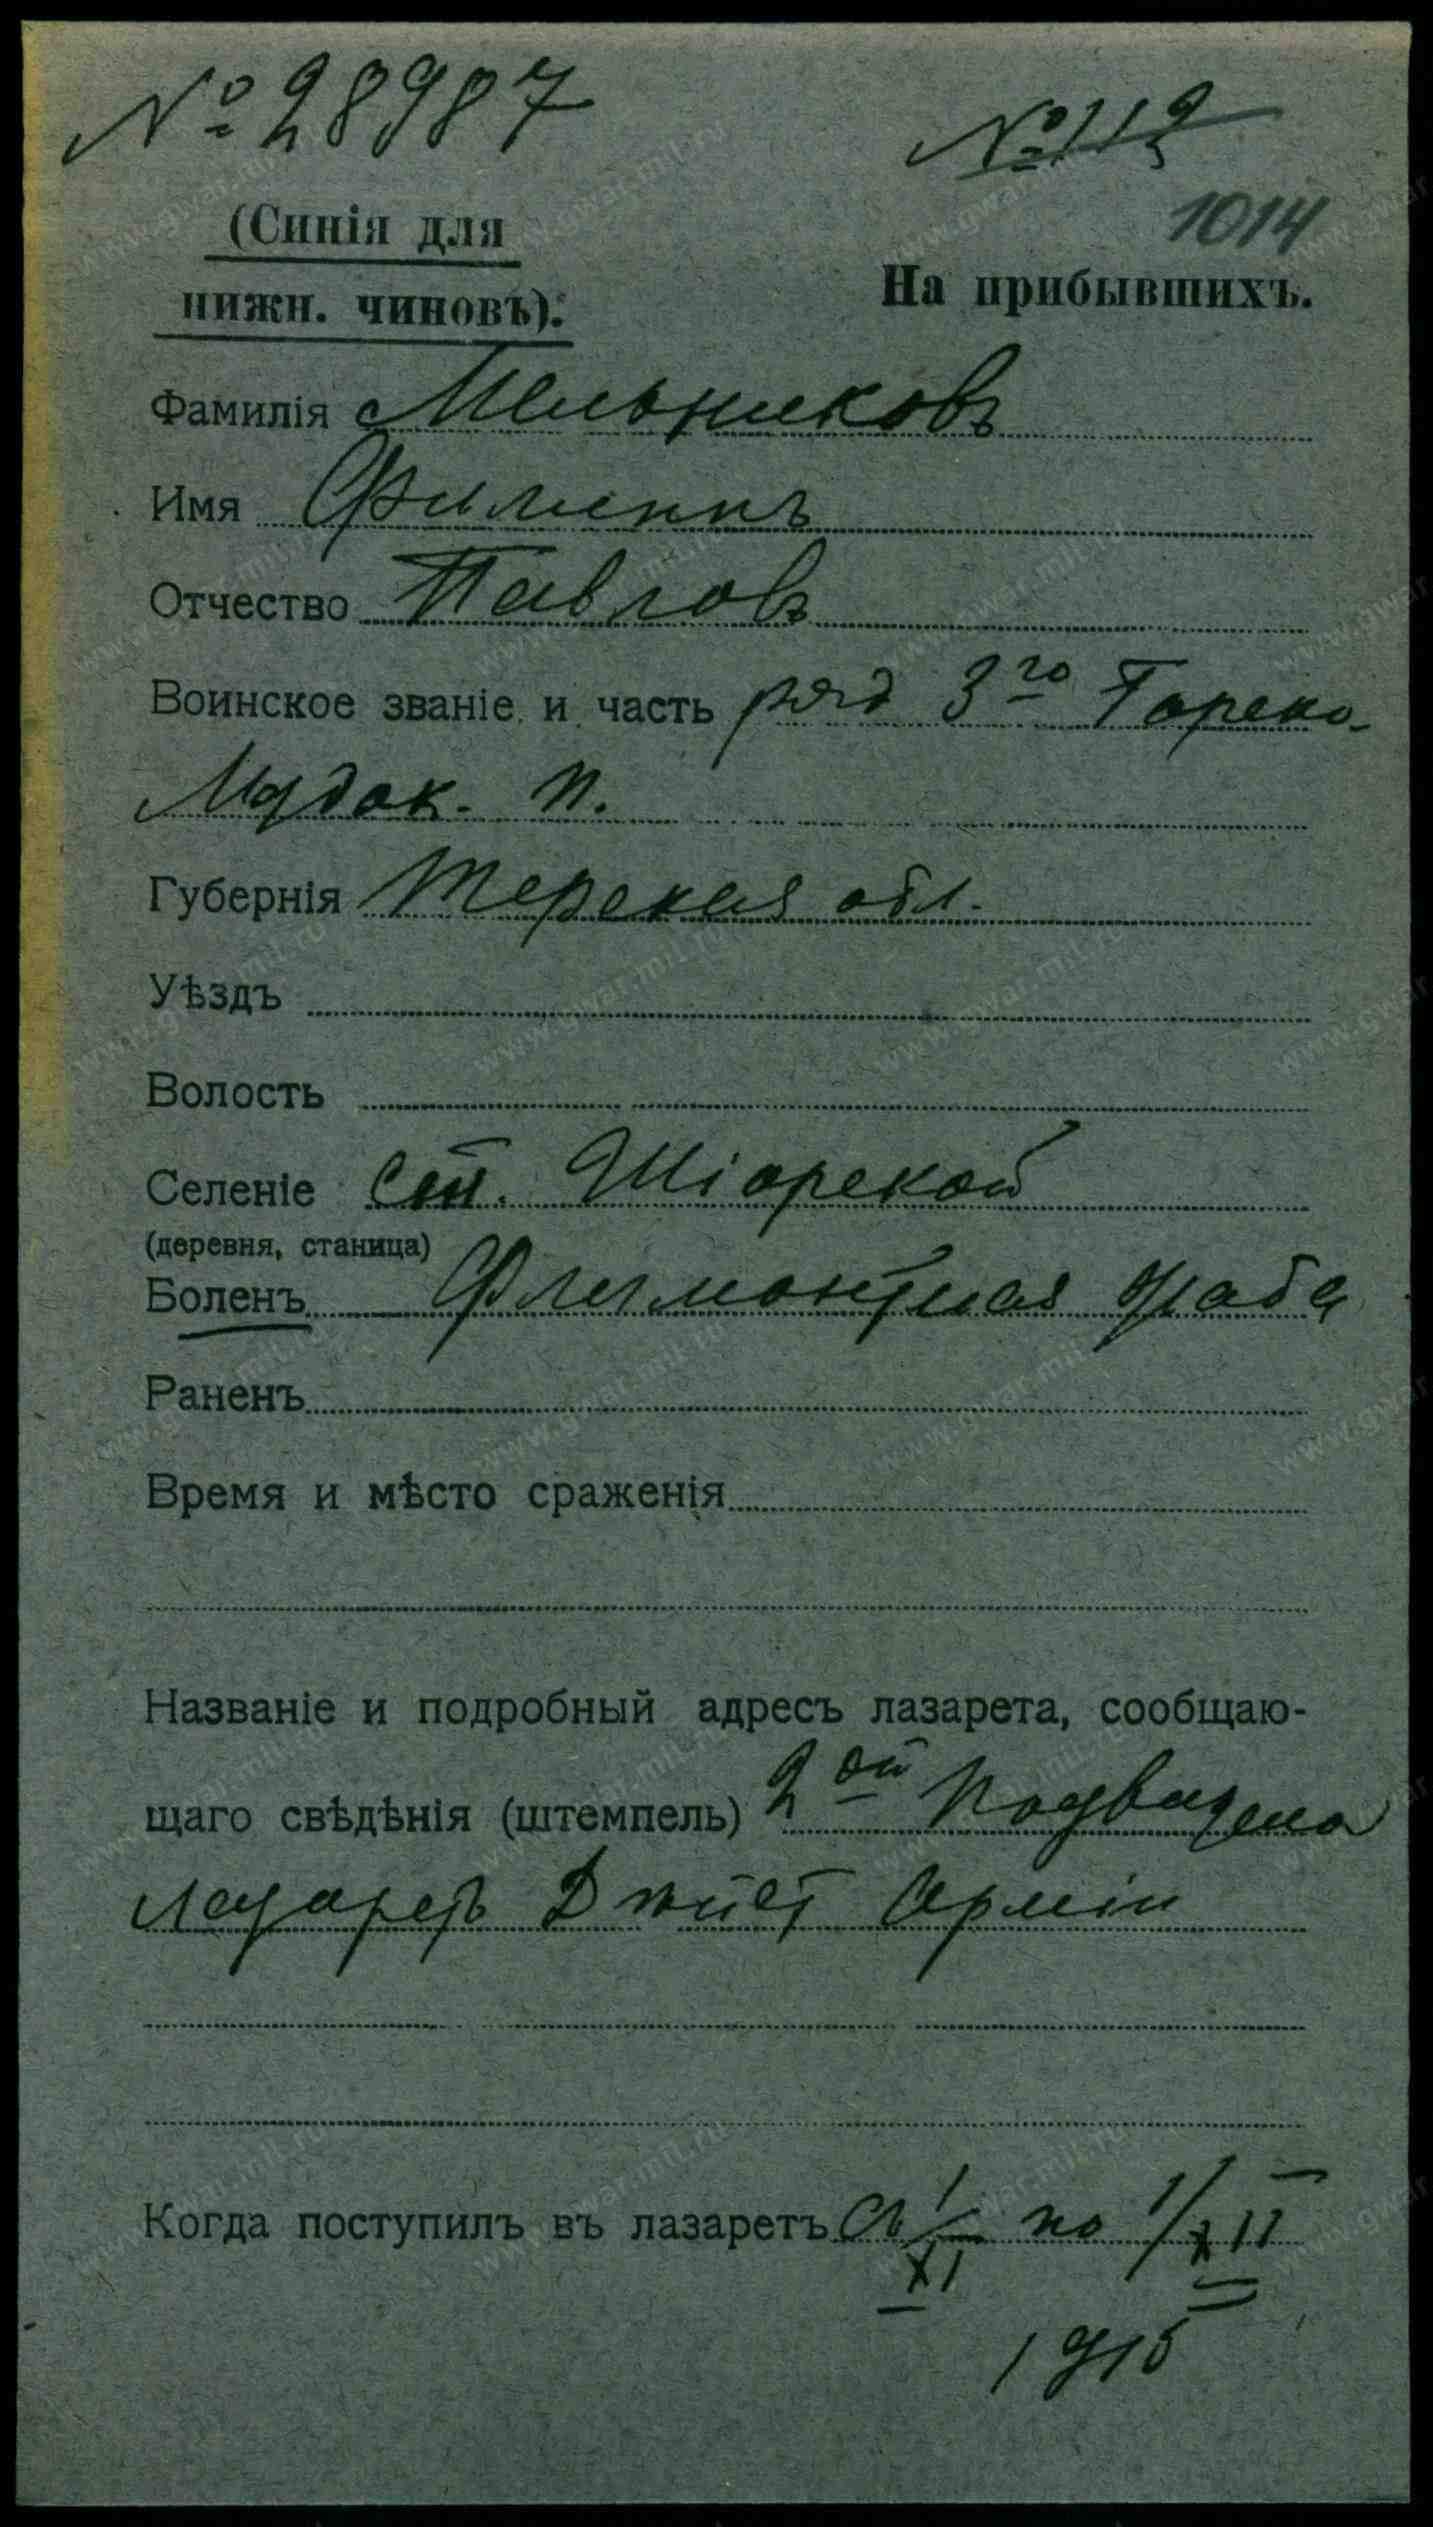 № 28987
№ 112
1014
(Синія для
нижн. чиновъ).
На прибывшихъ.
Фамилія Мельниковъ
Имя Филиппъ
Отчество Павловъ
Воинское званіе и часть ряд 3го Горско-
Моздок. п.
Губернія Терская обл.
Уѣздъ
Волость
Селеніе Ст.
(деревня, станица)
Боленъ Флегмонузная жаба
Раненъ
Время и мѣсто сраженія
Названіе и подробный адресъ лазарета, сообщаю-
щаго свѣдѣнія (штемпель) 2ой Подвижной
лазаретъ Арміи
Когда поступилъ въ лазаретъ съ 1/XI по 1/XII
1915